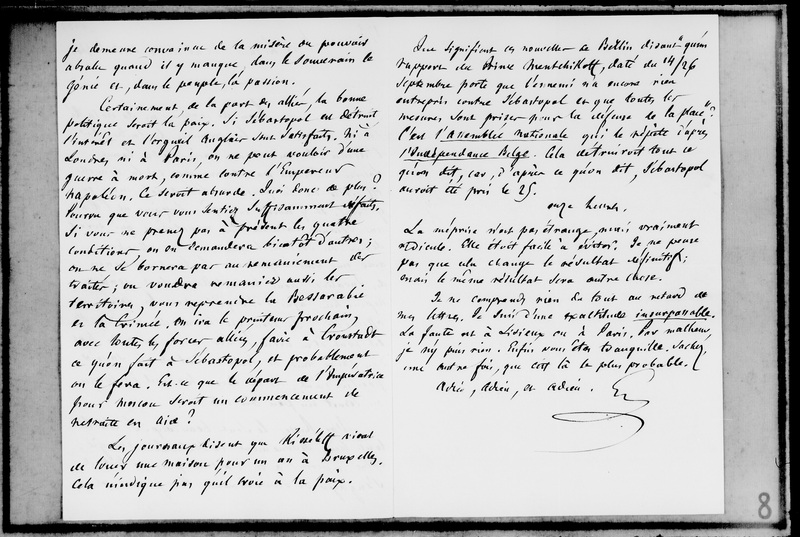 je demeure convaincu de la misère du pouvoir
absolu quand il y manque, dans le souverain le
génie et, dans le peuple, la passion.
Certainement de la part des alliés, la bonne
politique serait la paix. Si Sébastopol est détruit
l'intérêt et l'orgueil Anglais sont satisfaits. Ni à
Londres ni à Paris, on ne peut vouloir d'une
guerre à mort, comme contre l'Empereur
Napoléon. Ce serait absurde. Quoi donc de plus ?
Pourvu que vous vous sentiez suffisamment
Si vous ne prenez pas à présent les quatre
conditions, on en demandera bientôt d'autres ;
on ne se bornera pas au remaniement des
traités ; on voudra remanier aussi les
territoires, vous reprendre la Bessarabie
et la Crimée. On ira le printems prochain,
avec toutes les forces alliées, faire à Cronstadt
ce qu'on fait à Sébastopol, et probablement
on le fera. Est-ce que le départ de l'Impératrice
pour Moscou serait un commencement de
retraite en Asie ?
Les journaux disent que Kisséleff vient
de louer une maison pour un an à Bruxelles.
Cela n'indique pas qu'il croie à la paix.
Que signifient ces nouvelles de Berlin disant "qu'un
rapport du Prince Mentchikoff, daté du 14/26
Septembre porte que l'ennemi n'a encore rien
entrepris contre Sébastopol et que toutes les
mesures sont prises pour la défense de la place" ?
C'est l'Assemblée nationale qui le répète d'après
l'Indépendance Belge. Cela détruiroit tout ce
qu'on dit, car, d'après ce qu'on dit, Sébastopol
auroit été pris le 25.
onze heures.
La méprise n'est pas étrange, mais vraiment
ridicule. Elle étoit facile à éviter. Je ne pense
pas que cela change le résultat définitif ;
mais le même résultat sera autre chose.
Je ne comprends rien du tout au retard de
mes lettres. Je suis d'une exactitude insurpassable.
La faute est à Lisieux ou à Paris. Par malheur,
je n'y puis rien. Enfin vous êtes tranquille. Sachez,
une autre fois, que c'est là le plus probable.
Adieu, adieu, et adieu.
8